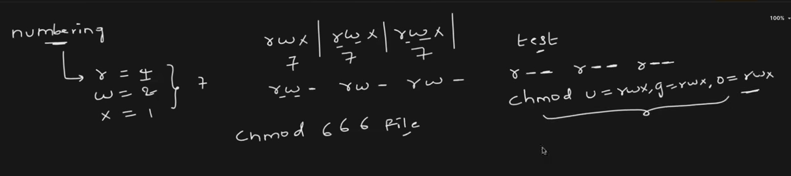 numbering
r = 4
w = 2
x = 1
7
rwx | rwx | rwx |
7 7 7
rw- rw- rw-
chmod 666 File
test
r-- r-- r--
chmod u=rwx,g=rwx,o=rwx
100%